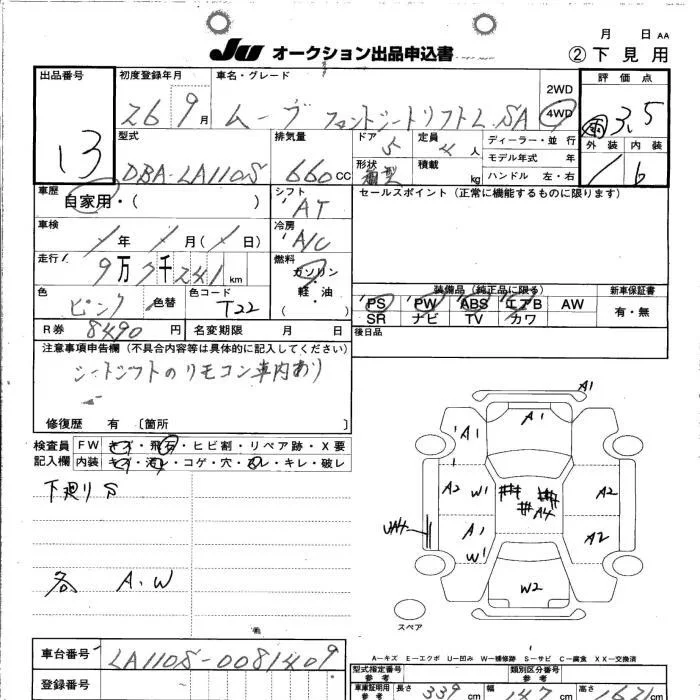 月 日 AA
JU オークション出品申込書 ②下見用
出品番号 13
初度登録年月 26 9月
車名・グレード ムーヴ フロントシートリフトL SA
2WD
4WD
評価点 3.5
外装 内装
型式 DBA-LA110S
排気量 660cc
ドア 5
定員 4人
形状 箱型
積載 kg
ディーラー・並行
モデル年式 年
ハンドル 左・右
車歴 自家用・( )
シフト AT
セールスポイント(正常に機能するものに限ります)
車検 /年 /月(/日)
冷房 A/C
走行 9万7千241km
燃料 ガソリン
軽・油
( )
色 ピンク 色替
色コード T22
装備品(純正品に限る)
PS PW ABS エアB AW
SR ナビ TV カワ
新車保証書
有・無
R券 8490円
名変期限 月 日
後日品
注意事項申告欄(不具合内容等は具体的に記入してください)
シートシフトのリモコン車内あり
修復歴 有 〔箇所 〕
検査員記入欄
FW キズ・飛石・ヒビ割・リペア跡・X要
内装 キズ・汚レ・コゲ・穴・スレ・キレ・破レ
下廻りS
各 A.W
A1
A1
A1
A2 W1 A4 A2
UA4 A1 A2
W1
W2
スペア
A-キズ E-エクボ U-凹み W-補修跡 S-サビ C-腐食 XX-交換済
車台番号 LA110S-0081409
登録番号
型式指定番号 参考
類別区分番号 参考
車庫証明用 参考 長さ 339cm 幅 147cm 高さ